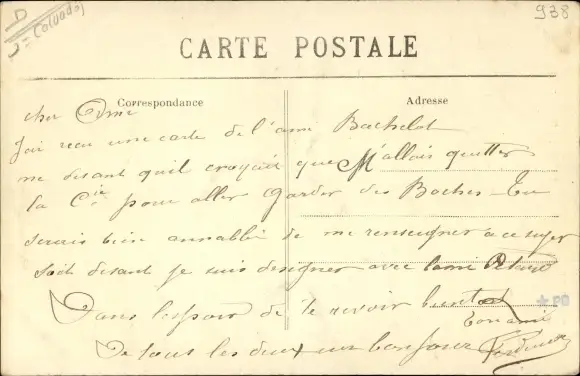 D
(Calvados)
938
CARTE POSTALE
Correspondance
Adresse
cher Ami
J'ai recu une carte de l'ami Bachelot
me disant qu'il croyait que M'allais quitter
la Cie pour aller Garder des Boches - Tu
serais bien annable de me renseigner a ce sujet
soit disant je suis designer avec lami
Dans l'espoir de te revoir bientot
Ton ami
De tous les deux un bonjour